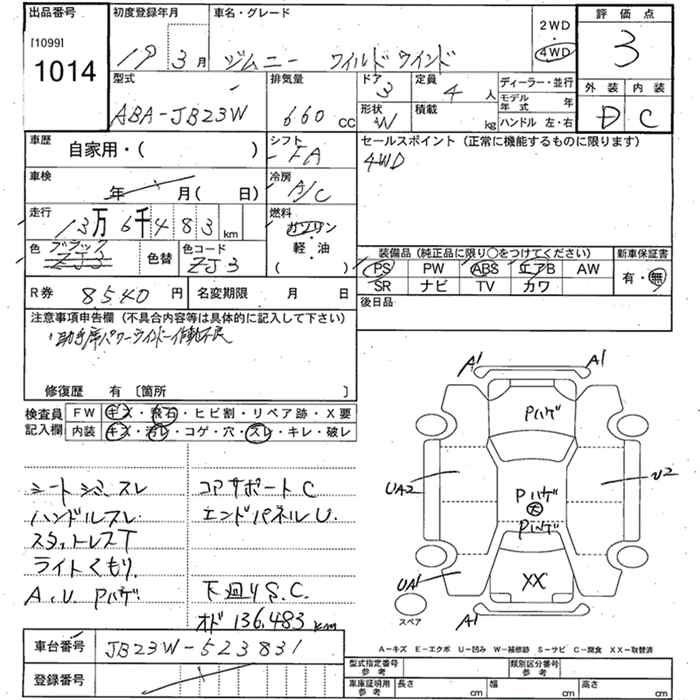 出品番号
[1099]
1014
初度登録年月
19 3月
車名・グレード
ジムニー ワイルドウインド
2WD
・
4WD
評価点
3
外装 内装
D C
型式
ABA-JB23W
排気量
660 CC
ドア
3
定員
4 人
形状
W
積載
kg
ディーラー・並行
モデル年式 年
ハンドル 左・右
車歴
自家用・( )
シフト
FA
車検
年 月(日)
冷房
A/C
走行
13万6千483km
燃料
ガソリン
・
軽・油
( )
色
ブラック
ZJ3
色替
色コード
ZJ3
セールスポイント(正常に機能するものに限ります)
4WD
装備品(純正品に限り○をつけてください)
PS PW ABS エアB AW
SR ナビ TV カワ
新車保証書
有・無
後日品
R券 8540円
名変期限 月 日
注意事項申告欄(不具合内容等は具体的に記入して下さい)
助手席パワーウインドー作動不良
修復歴 有〔箇所 〕
検査員記入欄
FW キズ・飛石・ヒビ割・リペア跡・X要
内装 キズ・汚レ・コゲ・穴・スレ・キレ・破レ
シートシミ、スレ
ハンドルスレ
スタットレスT
ライトくもり
A.U.Pハゲ
コアサポートC
エンドパネルU.
下廻りS.C.
オド136,483km
A1 A1
Pハゲ
UA2
U2
Pハゲ
大
Pハゲ
UA1
XX
A1
スペア
A-キズ E-エクボ U-凹み W-補修跡 S-サビ C-腐食 XX-取替済
車台番号
JB23W-523831
登録番号
型式指定番号参考
類別区分番号参考
車庫証明用参考
長さ cm 幅 cm 高さ cm